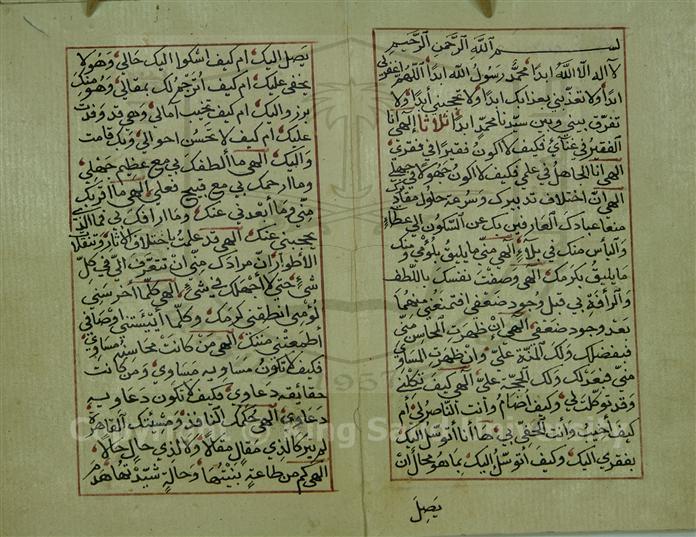 بســـــم الله الرحمن الرحيم
لا اله الا الله ابدا محمد رسول الله ابدا اللهم اغفر لي
ابدا ولا تعذبني بعذابك ابدا ولا تحجبني أبدا ولا
تفرق بيني وبين سيدنا محمد ابدا ثلاثا إلهي انا
الفقير في غناي فكيف لا اكون فقيرا في فقري
الهي انا الجاهل في علمي فكيف لا اكون جهولا في جهلي
الهي ان اختلاف تدبيرك وسرعة حلول مقاديرك
منعا عبادك العارفين بك عن السكون الي عطاء
والياس منك في بلاء الهي مني ما يليق بلؤمي ومنك
ما يليق بكرمك الهي وصفت نفسك باللطف
والرأفة بي قبل وجود ضعفي افتمنعني منهما
بعد وجود ضعفي الهي ان ظهرت المحاسن مني
فبفضلك ولك المنة علي وان ظهرت المساوي
مني فبعدلك ولك الحجة علي الهي كيف تكلني
وقد توكلت لي وكيف اضام وأنت الناصر لي أم
كيف أخيب وأنت الحفي بي ها أنا أتوسل اليك
بفقري اليك وكيف أتوسل اليك بما هو محال أن
يصل
يصل اليك ام كيف اشكوا اليك حالي وهو لا
يخفي عليك ام كيف أترجم لك بمقالي وهو منك
برز واليك ام كيف تخيب آمالي وهي قد وفدت
عليك ام كيف لا تحسن احوالي وبك قامت
واليك الهي ما الطفك بي مع عظيم جهلي
وما ارحمك بي مع قبيح فعلي الهي ما اقربك
مني وما أبعدني عنك وما ارافك بي فما الذي
يحجبني عنك الهي قد علمت باختلاف الاثار وتنقلات
الأطوار ان مرادك مني ان تتعرف الي في كل
شئ حتي لا أجهلك في شئ الهي كلما أخرسني
لؤمي انطقني كرمك وكلما أيئستني اوصافي
أطمعتني مننك الهي من كانت محاسنه مساوي
فكيف لا تكون مساويه مساوي ومن كانت
حقايقه دعاوي فكيف لا تكون دعاويه
دعاوي الهي حكمك النافذ ومشيئتك القاهرة
لم يتركا لذي مقال مقالا ولا لذي حال حالا
الهي كم من طاعة بنيتها وحالة شيدتها هدم